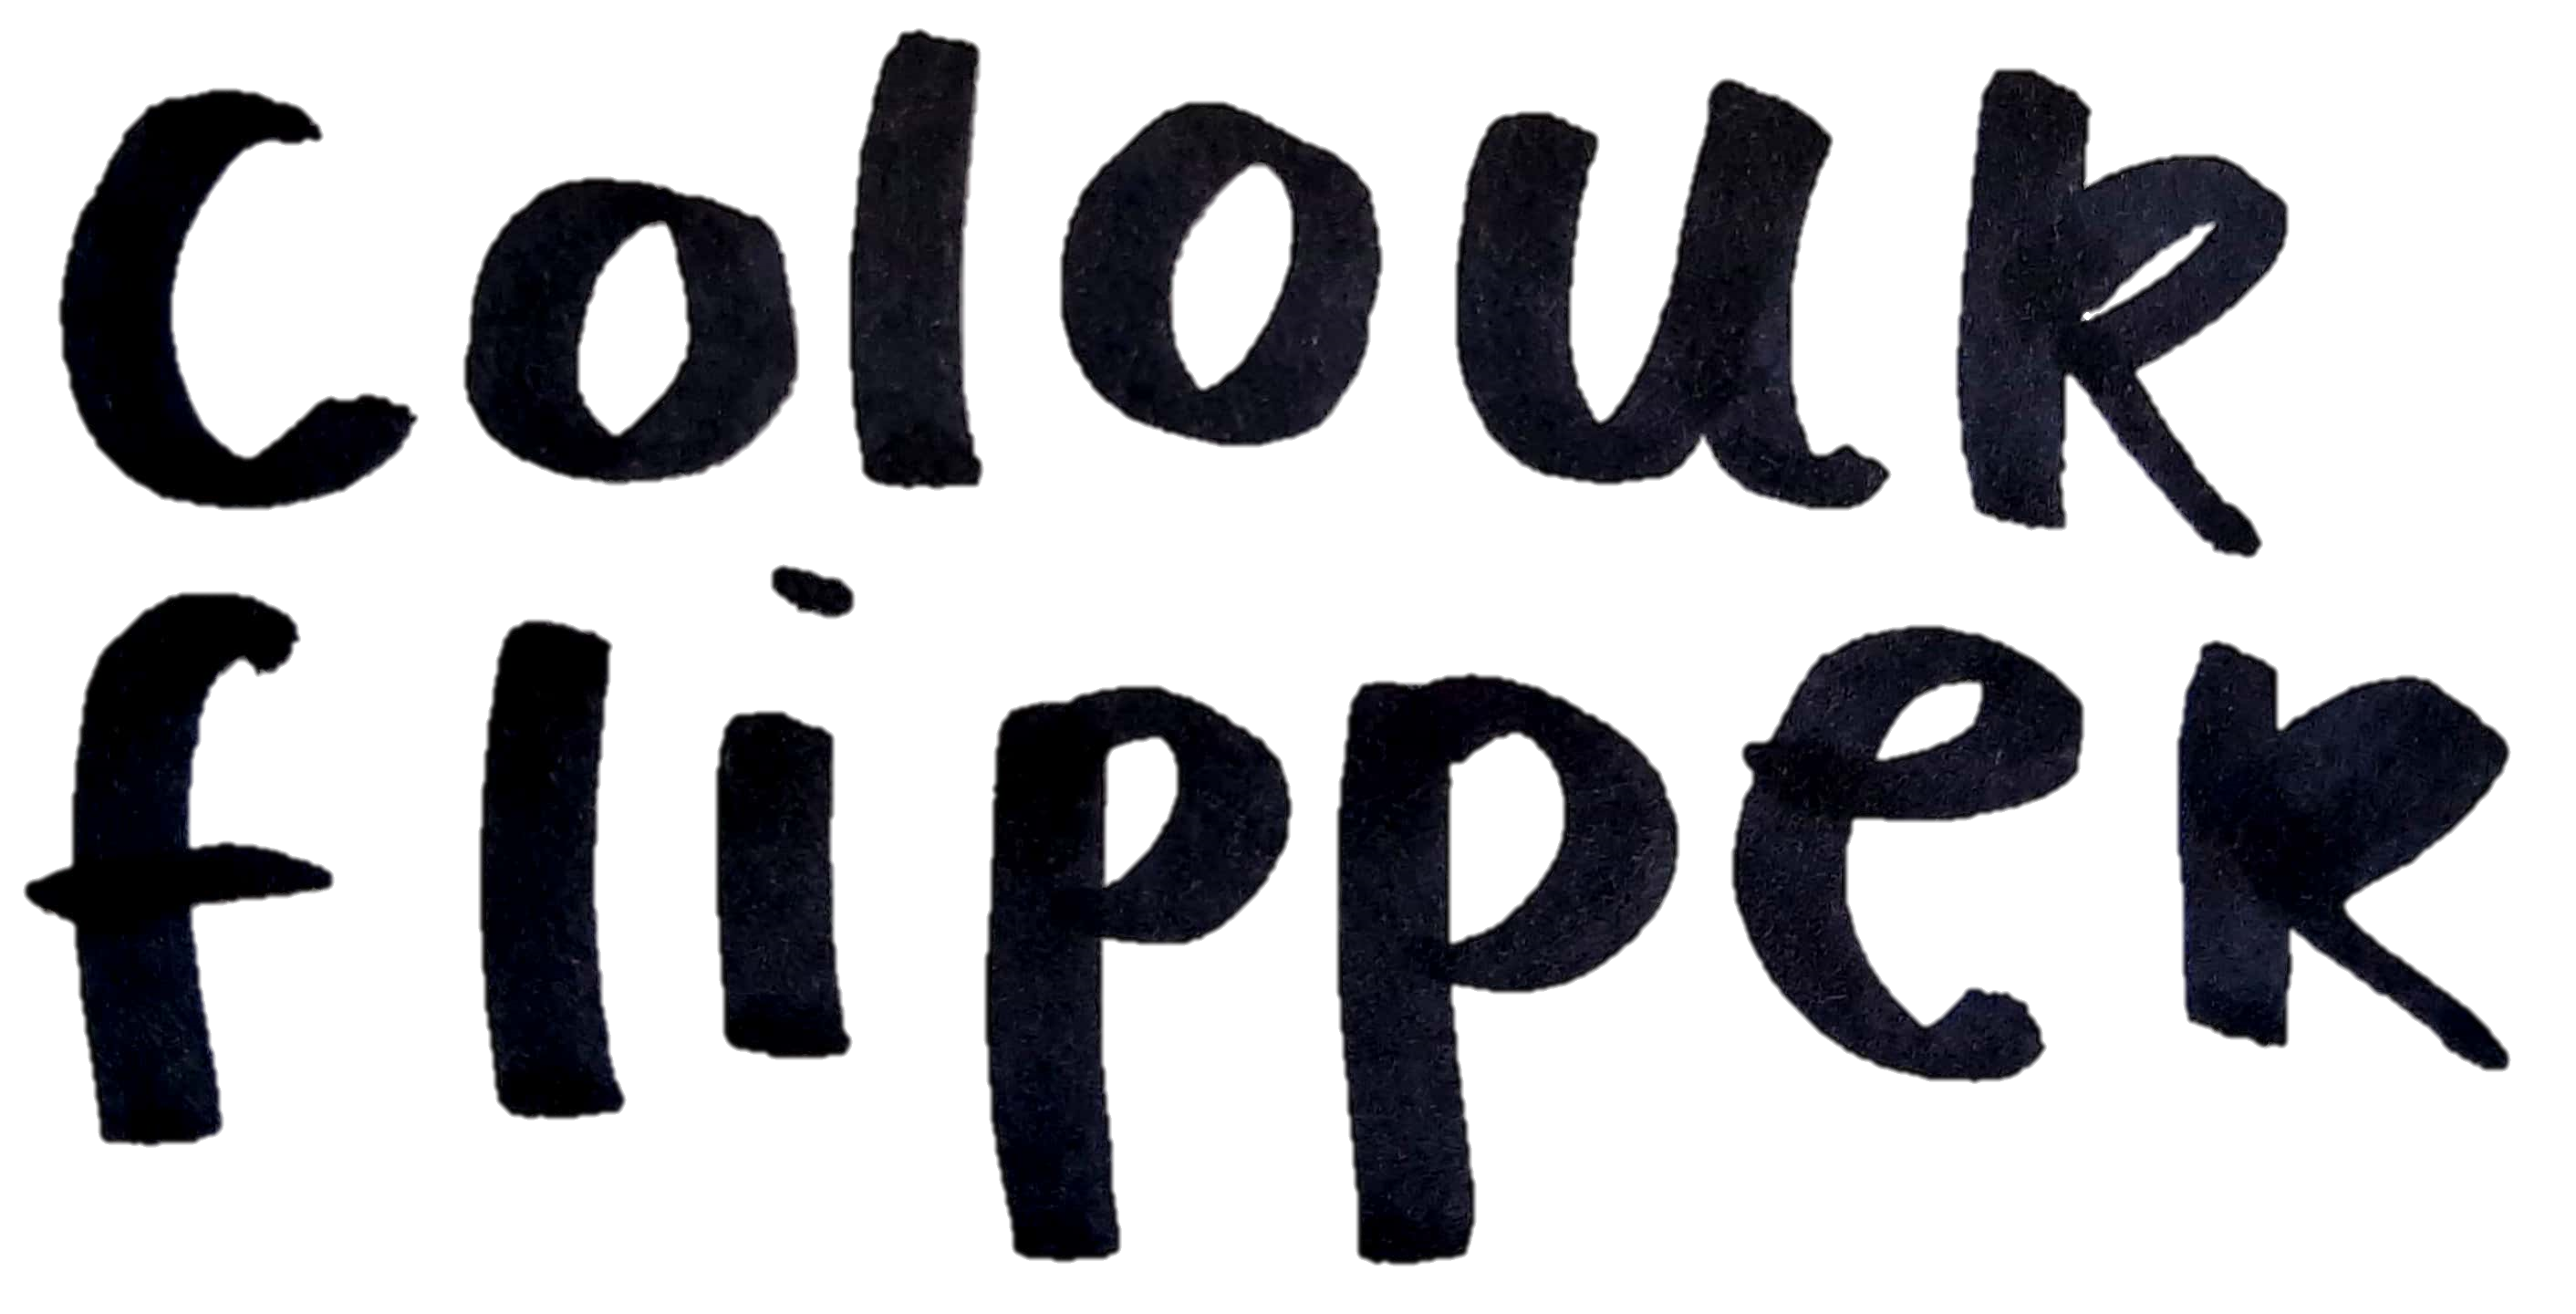 Colour
flipper